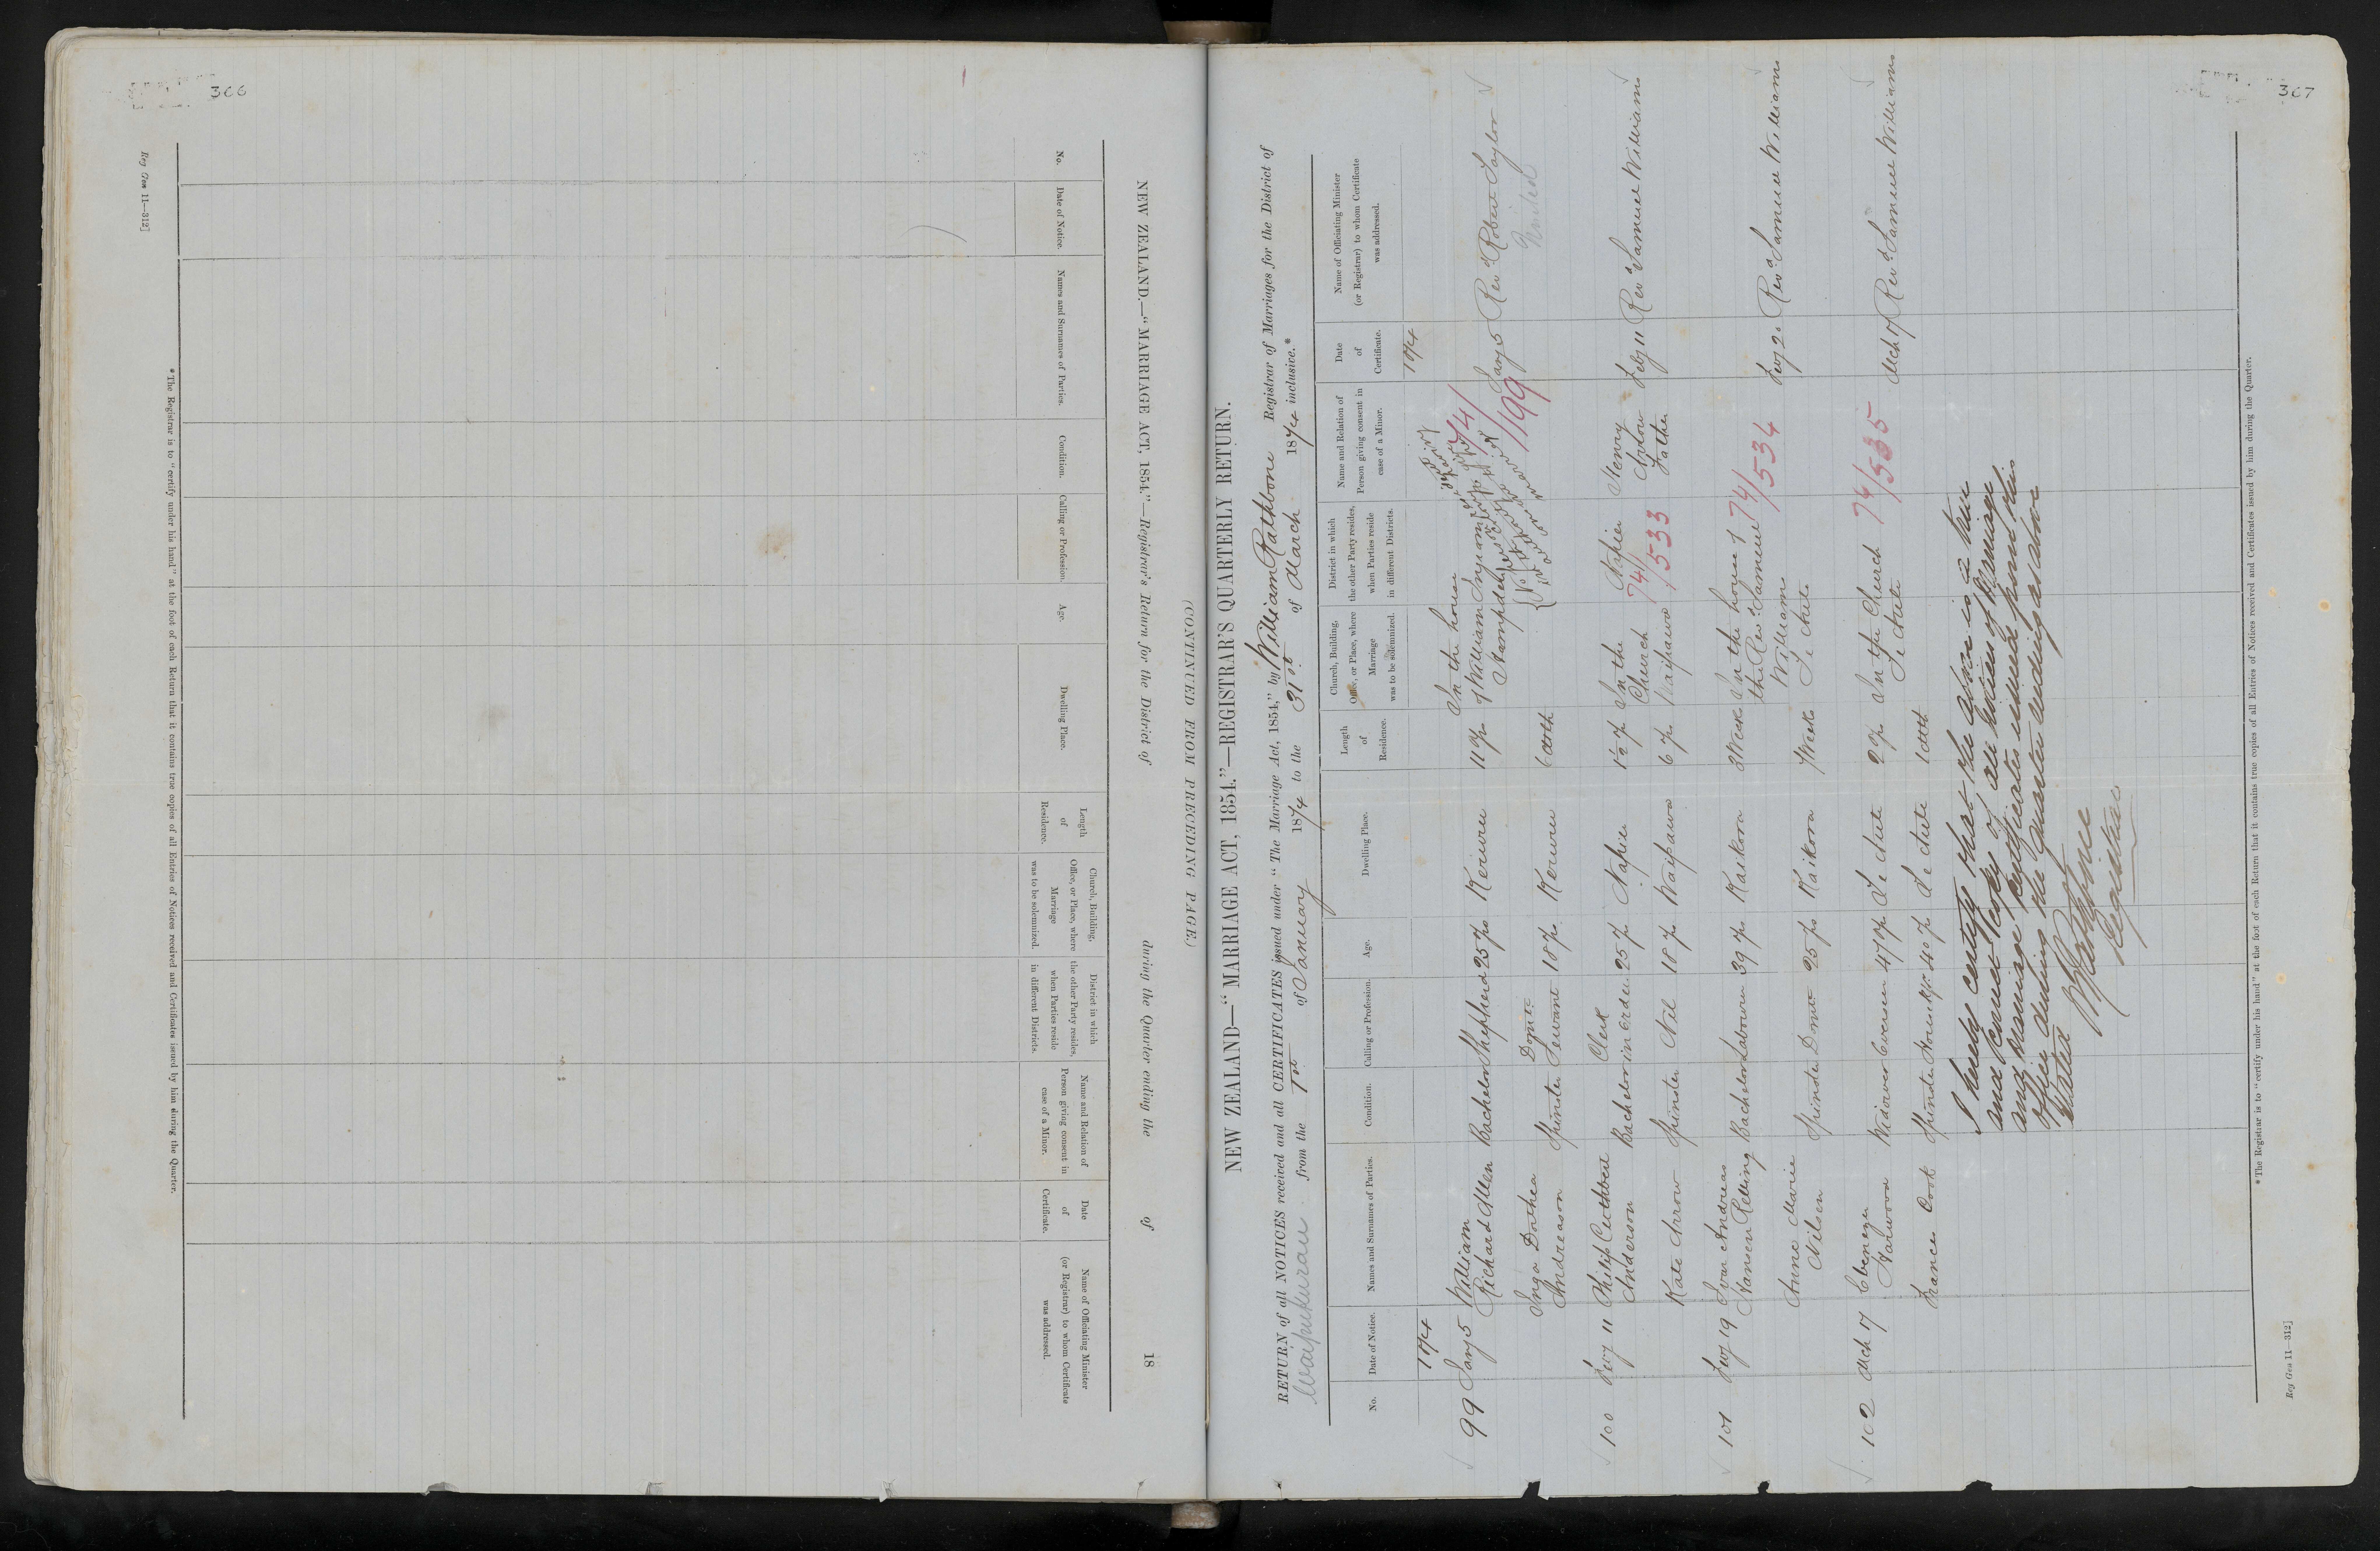 366
Reg Gen 11—312]
NEW ZEALAND.—“MARRIAGE ACT, 1854.”—Registrar's Return for the District of during the Quarter ending the of 18
(CONTINUED FROM PRECEDING PAGE.)
No.
Date of Notice.
Names and Surnames of Parties.
Condition.
Calling or Profession.
Age.
Dwelling Place.
Length of Residence.
Church, Building, Office, or Place, where Marriage was to be solemnized.
District in which the other Party resides, when Parties reside in different Districts.
Name and Relation of Person giving consent in case of a Minor.
Date of Certificate.
Name of Officiating Minister (or Registrar) to whom Certificate was addressed.
* The Registrar is to “certify under his hand” at the foot of each Return that it contains true copies of all Entries of Notices received and Certificates issued by him during the Quarter.
367
NEW ZEALAND—“MARRIAGE ACT, 1854.”—REGISTRAR'S QUARTERLY RETURN.
RETURN of all NOTICES received and all CERTIFICATES issued under “The Marriage Act, 1854,” by William Rathbone Registrar of Marriages for the District of
Waipukurau from the 1st of January 1874 to the 31st of March 1874 inclusive.*
No.
Date of Notice.
Names and Surnames of Parties.
Condition.
Calling or Profession.
Age.
Dwelling Place.
Length of Residence.
Church, Building, Office, or Place, where Marriage was to be solemnized.
District in which the other Party resides, when Parties reside in different Districts.
Name and Relation of Person giving consent in case of a Minor.
Date of Certificate.
Name of Officiating Minister (or Registrar) to whom Certificate was addressed.
1874 1874
99 Jany 5 William Richard Allen Bachelor Shepherd 25 yrs Kereru 11 yr In the house of William Ingram Hampden 74/1199 Jany 5 Revd Robert Taylor
Inga Dorthea Andreason Spinster Domtc Servant 18 yrs Kereru
100 Feby 11 Philip Cuthbert Anderson Bachelor Clerk in order 25 y Napier 1½ y In the Church Waipawa Napier Henry Arrow Father Feby 11 Revd Samuel Williams
74/533
Kate Arrow Spinster Nil 18 yr Waipawa 6 yr
101 Feby 19 Ivar Andreas Hansen Relling Bachelor Labourer 39 yrs Kaikora 3 Week In the house of the Revd Samuel Williams Te Aute 74/534 Revd Samuel Williams
Anne Marie Nilsen Spinster Domtc 25 yrs Kaikora
102 Mch 17 Ebenezer Norwood Widower Overseer 47 yr Te Aute 2 yr In the Church Te Aute 74/535 Mch 17 Revd Samuel Williams
Frances Cook Spinster 40 yr Te Aute
I hereby certify that the above is a true
and correct copy of all notices of Marriage
and Marriage Certificates issued from this
office during the quarter ending as above
stated
W Rathbone
Registrar
* The Registrar is to “certify under his hand” at the foot of each Return that it contains true copies of all Entries of Notices received and Certificates issued by him during the Quarter.
Reg Gen 11—312]